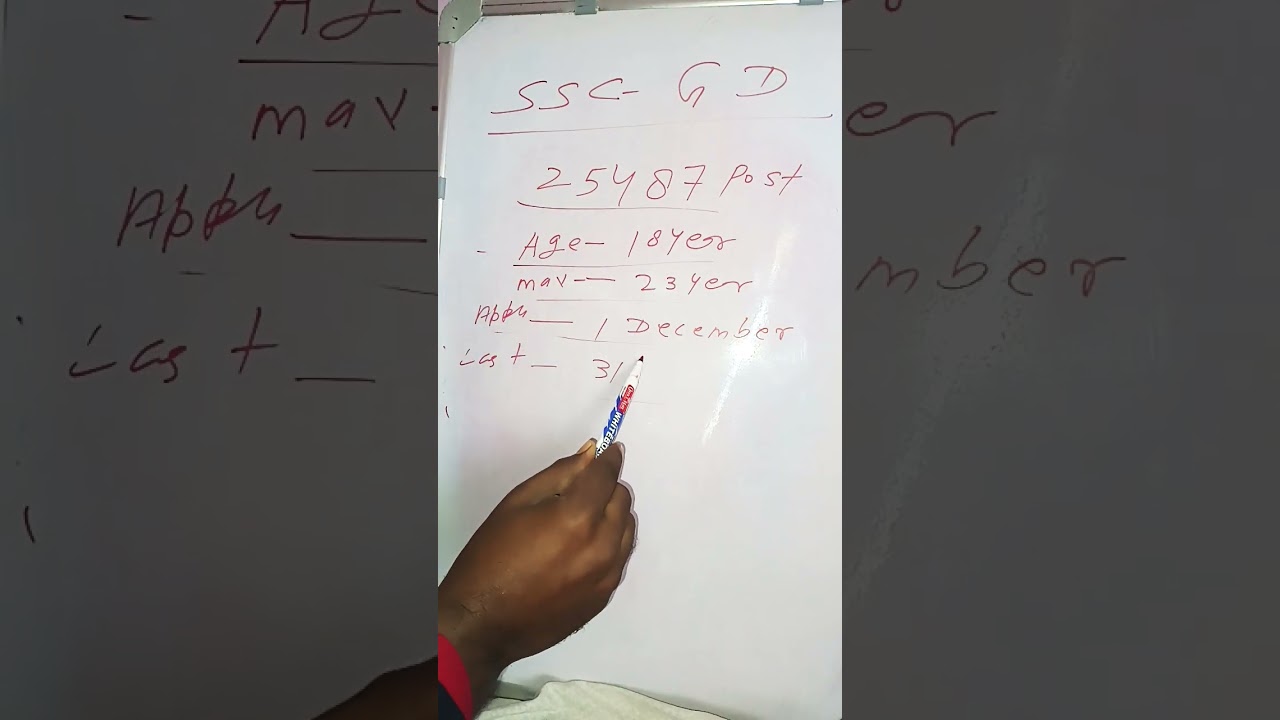 SSC- GD
25487 Post
- Age- 18 Yer
max - 23 Yer
Apply - 1 December
Last - 31
WHITEBO